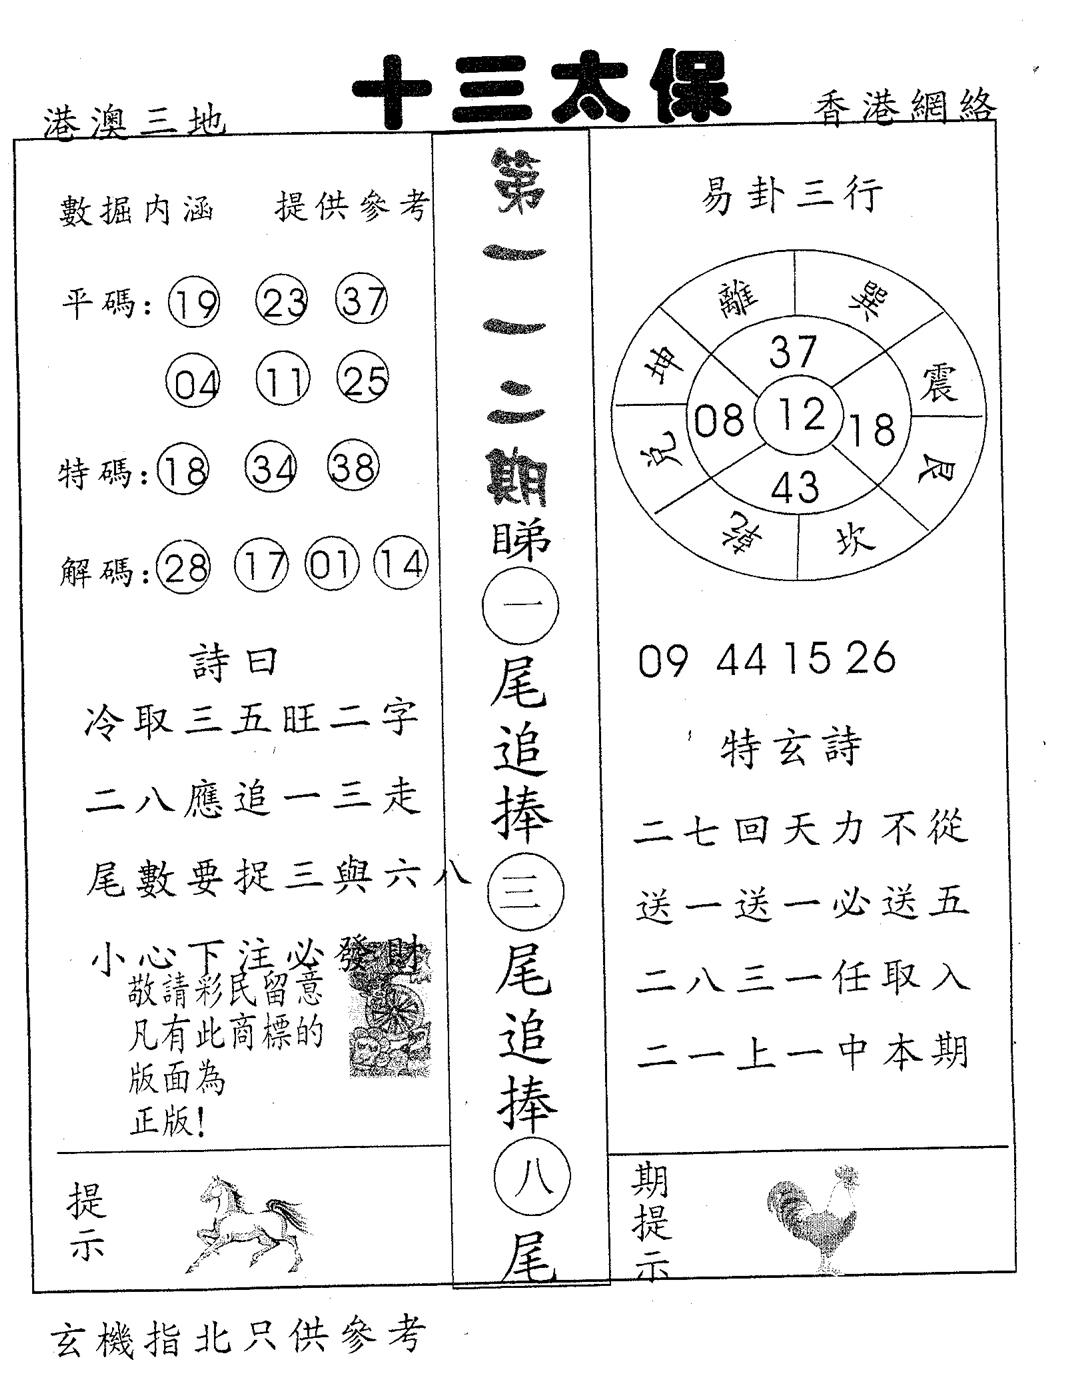 十三太保
港澳三地
香港網絡
數掘内涵 提供參考
平碼: 19 23 37
04 11 25
特碼: 18 34 38
解碼: 28 17 01 14
詩曰
冷取三五旺二字
二八應追一三走
尾數要捉三與六八
小心下注必發財
敬請彩民留意
凡有此商標的
版面為
正版!
提示
第一一二期
睇一尾追捧三尾追捧八尾
易卦三行
離 巽 震 艮 坎 乾 兌 坤
37
08 12 18
43
09 44 15 26
特玄詩
二七回天力不從
送一送一必送五
二八三一任取入
二一上一中本期
期提示
玄機指北只供參考